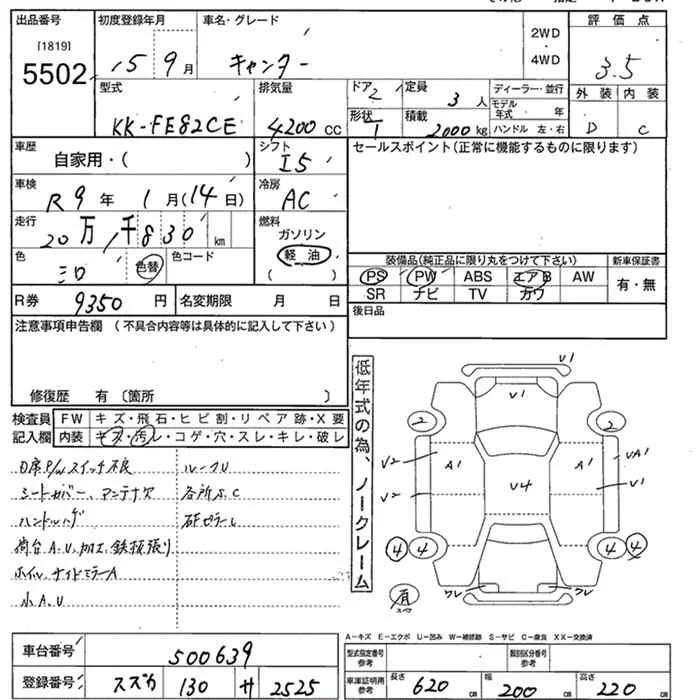 出品番号 初度登録年月 車名・グレード 2WD・4WD 評価点
[1819]
5502 15 9月 キャンター 3.5
型式 排気量 ドア 2 定員 3人 ディーラー・並行 外装 内装
KK-FE82CE 4200cc 形状 1 積載 2000kg モデル年式 年 ハンドル 左・右 D C
車歴 自家用・( ) シフト I5 セールスポイント(正常に機能するものに限ります)
車検 R9年 1月(14日) 冷房 AC
走行 20万 1千830km 燃料 ガソリン 軽油 ( )
色 シロ 色替 色コード 装備品(純正品に限り丸をつけて下さい) 新車保証書
PS PW ABS エアB AW 有・無
SR ナビ TV カワ
R券 9350円 名変期限 月 日 後日品
注意事項申告欄 (不具合内容等は具体的に記入して下さい)
修復歴 有 (箇所 )
検査員記入欄 FW キズ・飛石・ヒビ割・リペア跡・X要
内装 キズ・汚レ・コゲ・穴・スレ・キレ・破レ
シートカバー、アンテナ欠 各所S.C
荷台A.U、加工、鉄板張り
小A.U
低年式の為、ノークレーム
V1
V1
2 2
V2 A1 A1 VA1
V2 V4 V1
4 4 4 4
ワレ ワレ
A-キズ E-エクボ U-凹み W-補修跡 S-サビ C-腐食 XX-交換済
車台番号 500639 型式指定番号 参考 類別区分番号 参考
登録番号 スズカ 130 サ 2525 車庫証明用 参考 長さ 620cm 幅 200cm 高さ 220cm